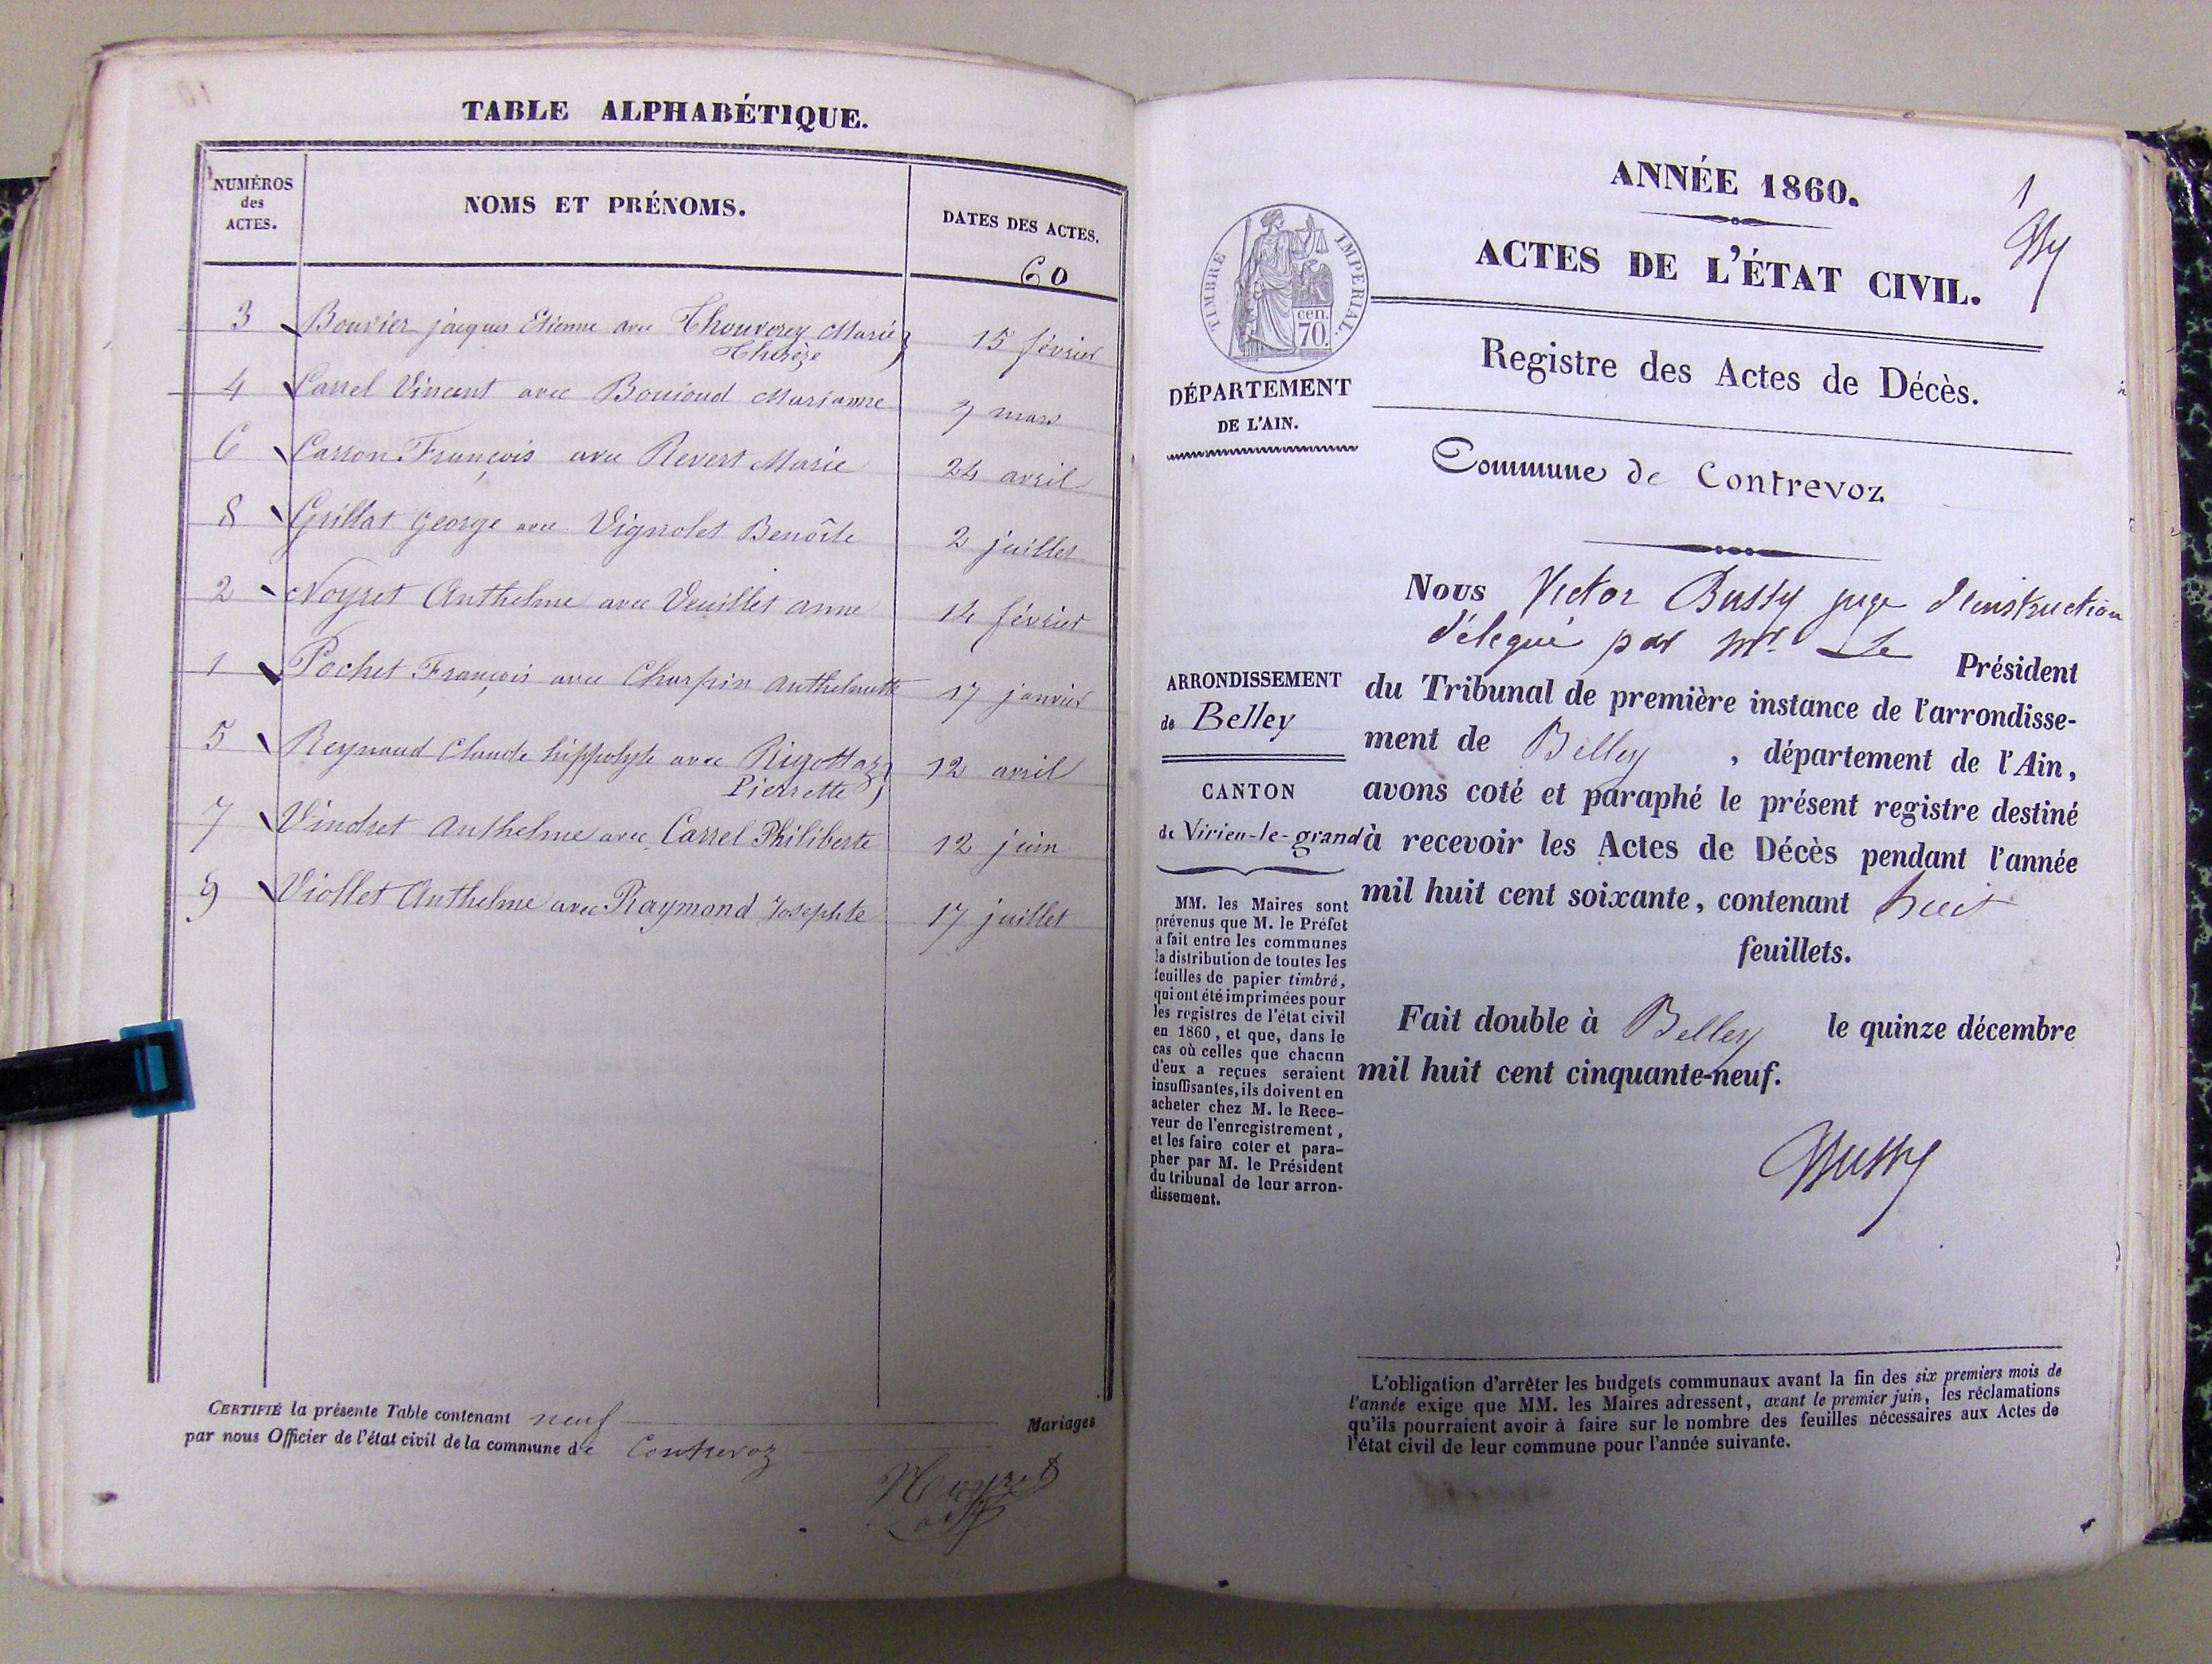 TABLE ALPHABÉTIQUE.
NUMÉROS
des
ACTES.
NOMS ET PRÉNOMS.
DATES DES ACTES.
60
3 Bouvier jacques Etienne avec Thouverey Marie
Thérèze
15 février
4 Carrel Vincent avec Bouioud Marianne
7 mars
6 Carron François avec Revert Marie
24 avril
8 Grillat George avec Vignolet Benoîte
2 juillet
2 Noyret Anthelme avec Veuillet anne
14 février
1 Pochet François avec Charpin anthelmette
17 janvier
5 Reynaud Claude hippolyte avec Rigottaz
Pierrette
12 avril
7 Vindret Anthelme avec Carrel Philiberte
12 juin
9 Viollet Anthelme avec Raymond Josephte
17 juillet
CERTIFIÉ la présente Table contenant neuf Mariages
par nous Officier de l'état civil de la commune de Contrevoz
Noyret
ANNÉE 1860.
1
ACTES DE L'ÉTAT CIVIL.
TIMBRE IMPÉRIAL.
cen.
70.
Registre des Actes de Décès.
DÉPARTEMENT
DE L'AIN.
Commune de Contrevoz
ARRONDISSEMENT
de Belley
CANTON
de Virieu-le-grand
MM. les Maires sont
prévenus que M. le Préfet
a fait entre les communes
la distribution de toutes les
feuilles de papier timbré,
qui ont été imprimées pour
les registres de l'état civil
en 1860, et que, dans le
cas où celles que chacun
d'eux a reçues seraient
insuffisantes, ils doivent en
acheter chez M. le Rece-
veur de l'enregistrement,
et les faire coter et para-
pher par M. le Président
du tribunal de leur arron-
dissement.
Nous Victor Bussy juge d'instruction
délegué par Mr. Le Président
du Tribunal de première instance de l'arrondisse-
ment de Belley, département de l'Ain,
avons coté et paraphé le présent registre destiné
à recevoir les Actes de Décès pendant l'année
mil huit cent soixante, contenant huit
feuillets.
Fait double à Belley le quinze décembre
mil huit cent cinquante-neuf.
Bussy
L'obligation d'arrêter les budgets communaux avant la fin des six premiers mois de
l'année exige que MM. les Maires adressent, avant le premier juin, les réclamations
qu'ils pourraient avoir à faire sur le nombre des feuilles nécessaires aux Actes de
l'état civil de leur commune pour l'année suivante.